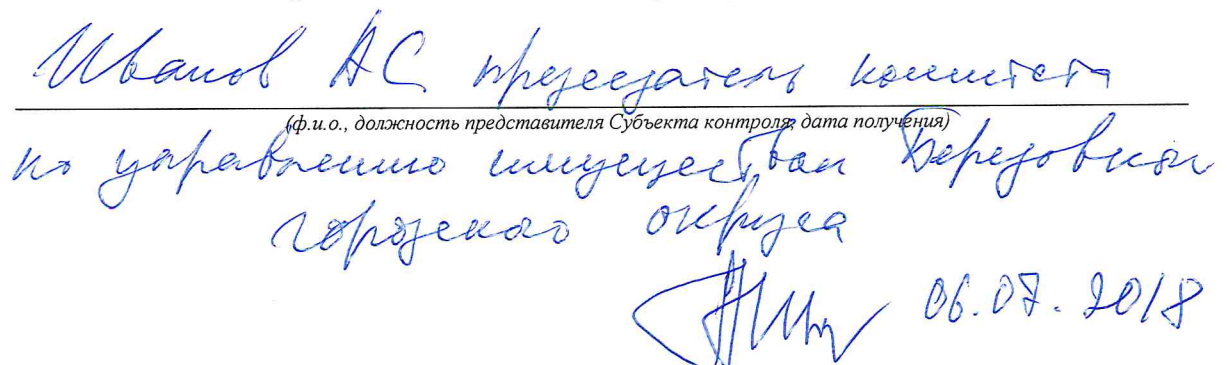 Иванов АС председатель комитета
(ф.и.о., должность представителя Субъекта контроля, дата получения)
по управлению имуществом Березовского
городского округа
06.07.2018